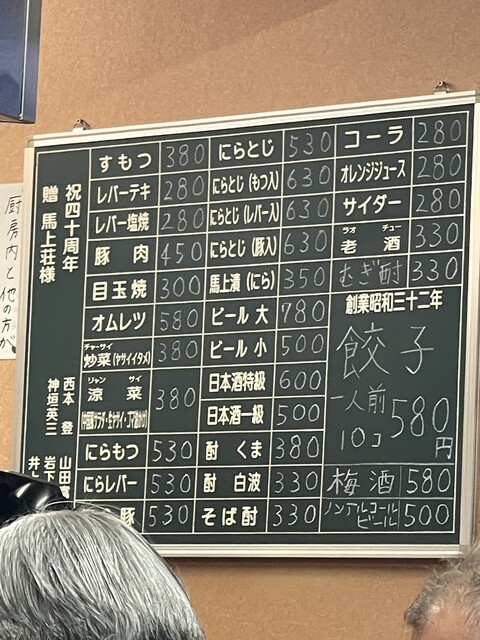 祝四十周年
贈 馬上荘様
西本 登
神垣英三
すもつ 380
レバーテキ 280
レバー塩焼 280
豚肉 450
目玉焼 300
オムレツ 580
チャーサイ
炒菜(ヤサイイタメ) 380
リャン サイ
涼菜 380
にらもつ 530
にらレバー 530
豚 530
にらとじ 530
にらとじ(もつ入) 630
にらとじ(レバー入) 630
にらとじ(豚入) 630
馬上漬(にら) 350
ビール 大 780
ビール 小 500
日本酒特級 600
日本酒一級 500
酎 くま 380
酎 白波 330
そば酎 330
コーラ 280
オレンジジュース 280
サイダー 280
ラオ チュー
老酒 330
むぎ酎 330
創業昭和三十二年
餃子
一人前
10コ 580円
梅酒 580
ノンアルコールビール 500
厨房内と他の方が